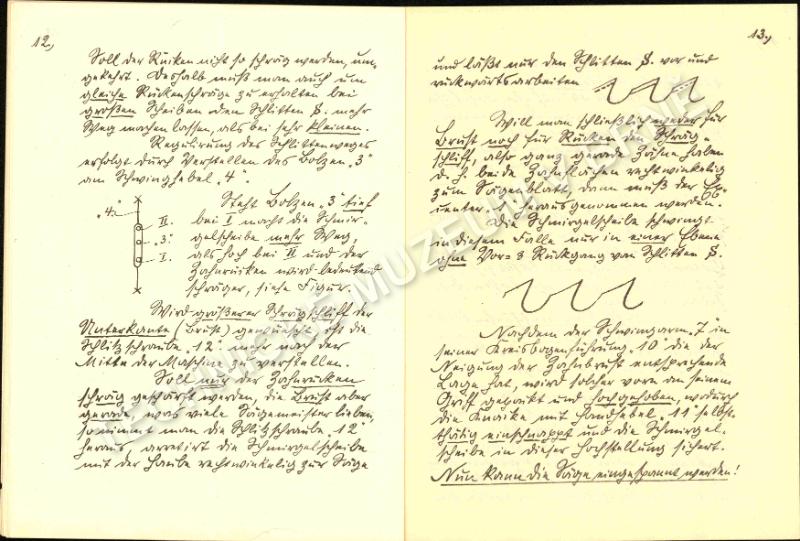 12.,
Soll der Rücken nicht so schräg werden, um-
gekehrt. Deshalb muß man auch um
gleiche Rückenschräge zu erhalten bei
großen Scheiben den Schlitten S. mehr
Weg machen lassen, als bei sehr kleinen.
Regulirung des Schlittenweges
erfolgt durch Verstellen des Bolzen „3"
am Schwinghebel „4".
„4."
II.
„3."
I.
Steht Bolzen „3" tief
bei I macht die Schmir-
gelscheibe mehr Weg,
als hoch bei II und der
Zahnrücken wird bedeutend
schräger, siehe Figur.
Wird größerer Schrägschliff der
Unterkante (Brust) gewünscht ist die
Schlitzschraube „12" mehr nach der
Mitte der Maschine zu verstellen.
Soll nur der Zahnrücken
schräg geschärft werden, die Brust aber
gerade, was viele Sägemeister lieben,
so nimmt man die Schlitzschraube „12"
heraus, arretirt die Schmirgelscheibe
mit der Haube rechtwinkelig zur Säge
13.,
und läßt nur den Schlitten S. vor und
rückwärts arbeiten
Will man schließlich weder für
Brust noch für Rücken den Schräg-
schliff, also ganz gerade Zähne haben
d. h. beide Zahnflächen rechtwinkelig
zum Sägenblatt, dann muß der Ex-
center herausgenommen werden.
Die Schmirgelscheibe schwingt
in diesem Falle nur in einer Ebene
ohne Vor= & Rückgang von Schlitten S.
Nachdem der Schwingarm „7" in
seiner Kreisbogenführung „10" die der
Neigung der Zahnbrust entsprechende
Lage hat, wird solcher vorn an seinem
Griff gepackt und hochgehoben, wodurch
die Knaike mit Handhebel „11" selbst-
thätig einschnappt und die Schmirgel-
scheibe in dieser Hochstellung sichert.
Nun kann die Säge eingespannt werden!